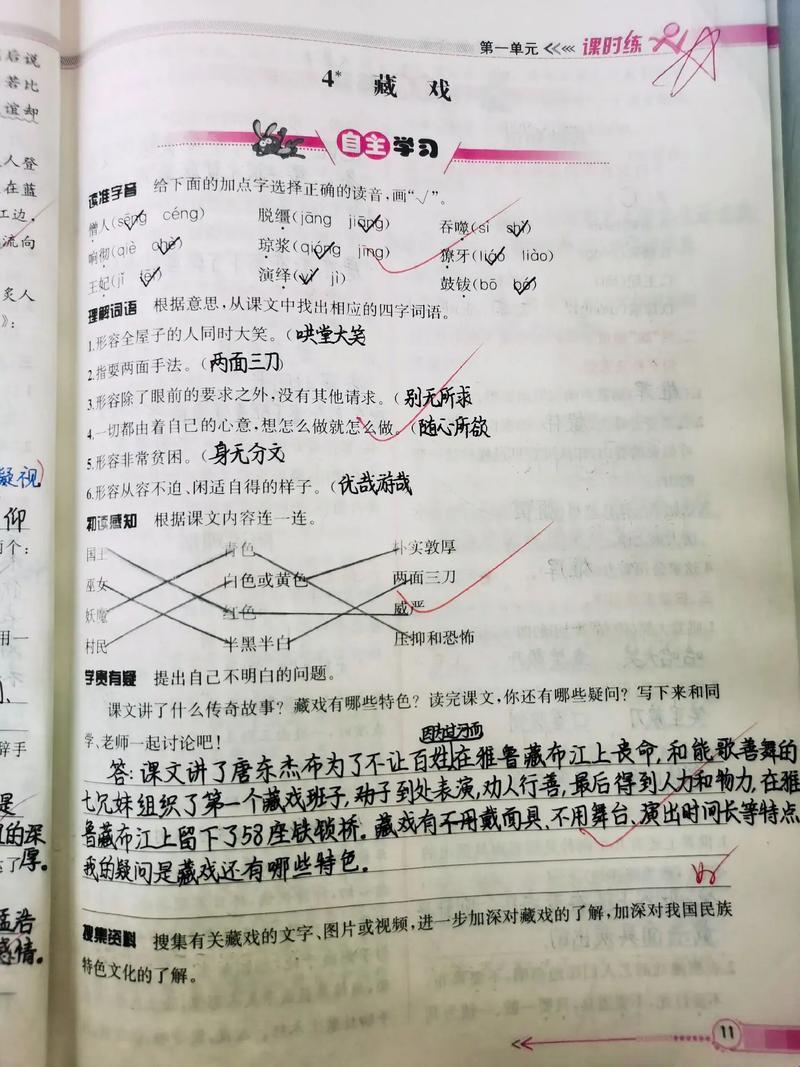 后说
若比
谊却
人登
在蓝
江边,
流向
炙人
》:
凝视)
仰
两个:
用一
辞手
是
的深
厚。
孟浩
感情。
第一单元 课时练
4* 藏戏
自主学习
读准字音 给下面的加点字选择正确的读音,画“√”。
僧人(sēng céng) 脱缰(jāng jiāng) 吞噬(sì shì)
响彻(qiè chè) 琼浆(qióng jīng) 獠牙(liáo liào)
王妃(jī fēi) 演绎(yì jì) 鼓钹(bō bó)
理解词语 根据意思,从课文中找出相应的四字词语。
1.形容全屋子的人同时大笑。(哄堂大笑
2.指耍两面手法。(两面三刀)
3.形容除了眼前的要求之外,没有其他请求。(别无所求
4.一切都由着自己的心意,想怎么做就怎么做。(随心所欲
5.形容非常贫困。(身无分文
6.形容从容不迫、闲适自得的样子。(优哉游哉
初读感知 根据课文内容连一连。
国王 青色 朴实敦厚
巫女 白色或黄色 两面三刀
妖魔 红色 威严
村民 半黑半白 压抑和恐怖
学贵有疑 提出自己不明白的问题。
课文讲了什么传奇故事?藏戏有哪些特色?读完课文,你还有哪些疑问?写下来和同
学、老师一起讨论吧!
因为过河而
答:课文讲了唐东杰布为了不让百姓在雅鲁藏布江上丧命,和能歌善舞的
七兄妹组织了第一个藏戏班子,到处表演,劝人行善,最后得到人力和物力,在雅
鲁藏布江上留下了58座铁锁桥。藏戏有不用戴面具、不用舞台、演出时间长等特点
我的疑问是藏戏还有哪些特色。
搜集资料 搜集有关藏戏的文字、图片或视频,进一步加深对藏戏的了解,加深对我国民族
特色文化的了解。
11